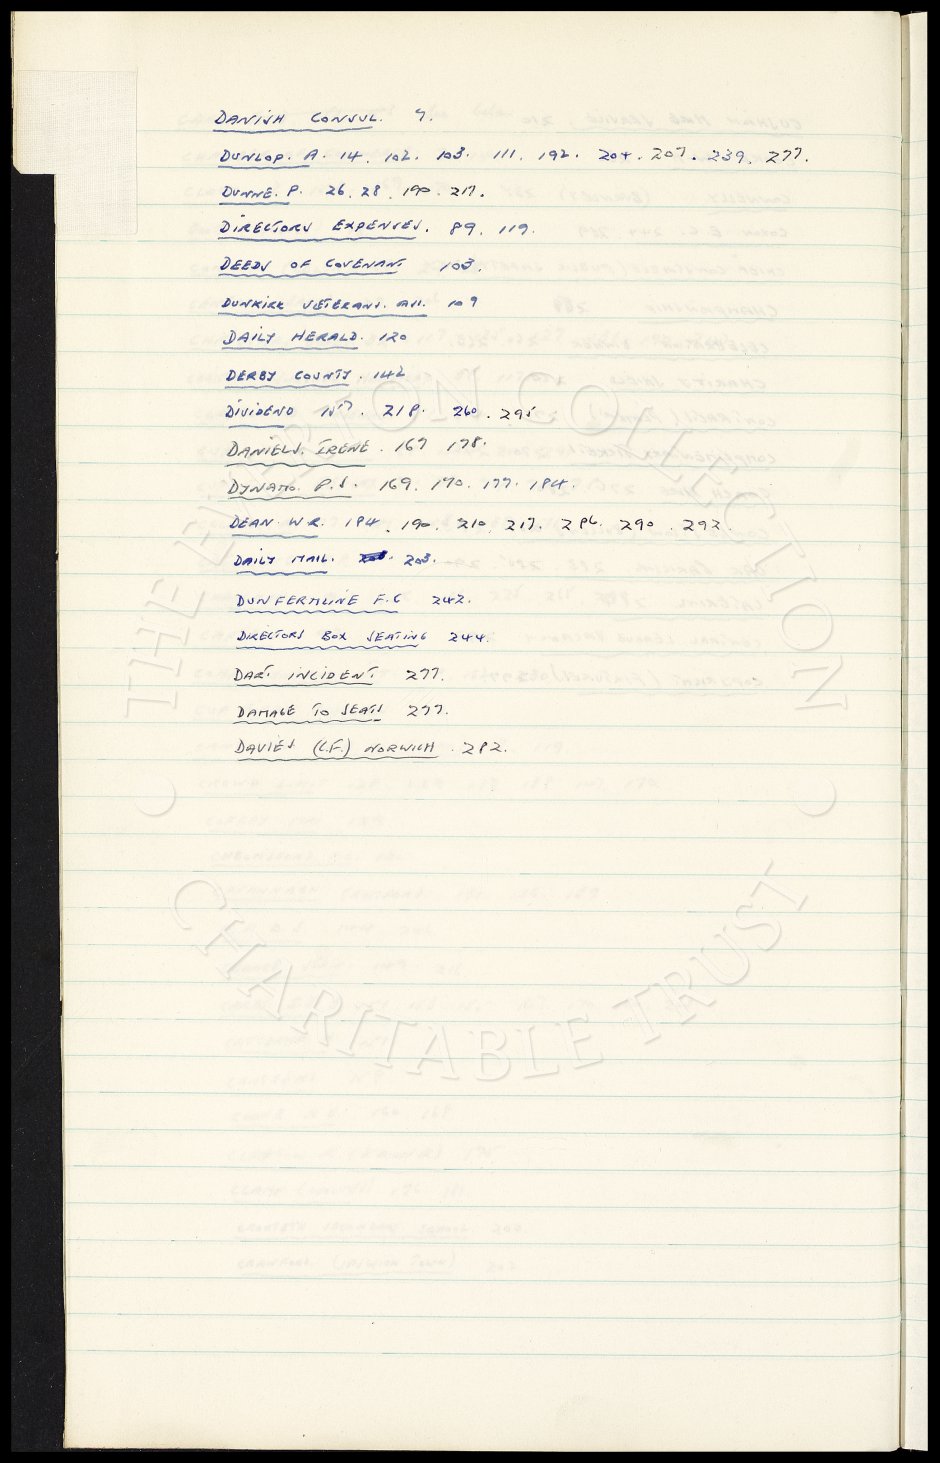 DANISH CONSUL. 9.
DUNLOP. A. 14. 102. 103. 111. 192. 204. 207. 239. 277.
DUNNE. P. 26. 28. 190. 217.
DIRECTORS EXPENSES. 89. 119.
DEEDS OF COVENANT 103.
DUNKIRK VETERANS. ASS. 109
DAILY HERALD. 120
DERBY COUNTY. 142
DIVIDEND 157. 218. 260. 295.
DANIELS. IRENE. 167 178.
DYNAMO. P.S. 169. 170. 177. 184.
DEAN. W.R. 184. 190. 210. 217. 286. 290. 292.
DAILY MAIL. 203.
DUNFERMLINE F.C 242.
DIRECTORS BOX SEATING 244.
DART INCIDENT. 277.
DAMAGE TO SEATS 277.
DAVIES (C.F.) NORWICH. 282.
THE EVERTON COLLECTION
CHARITABLE TRUST